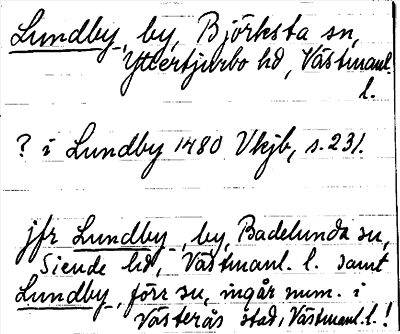 Lundby, by, Björksta sn,
Yttertjurbo hd, Västmanl.
l.
? i Lundby 1480 Vkjb, s. 231.
jfr Lundby, by, Badelunda sn,
Siende hd, Västmanl. l. samt
Lundby, förr sn, ingår num. i
Västerås stad, Västmanl. l.!